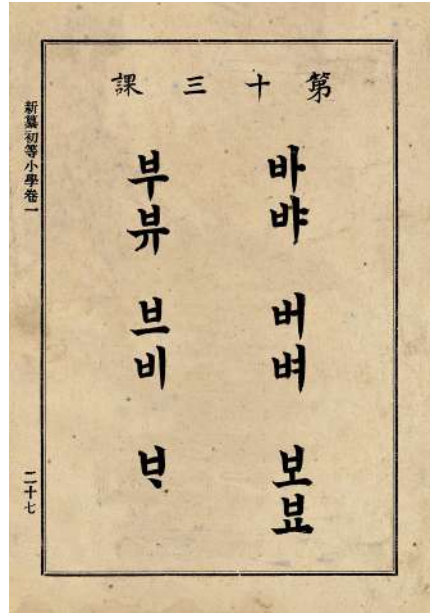 第十三課
바뱌 버벼 보뵤
부뷰 브비 ᄇᆞ
新纂初等小學卷一
二十七